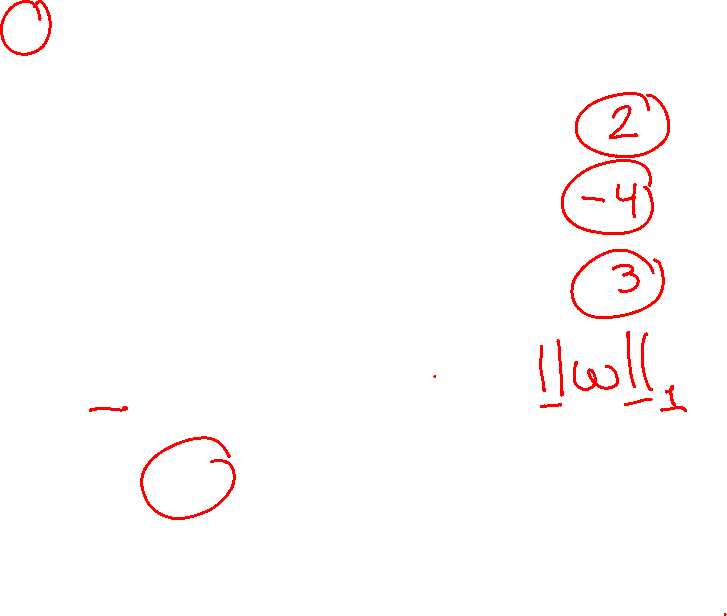 2
-4
3
||w||₁